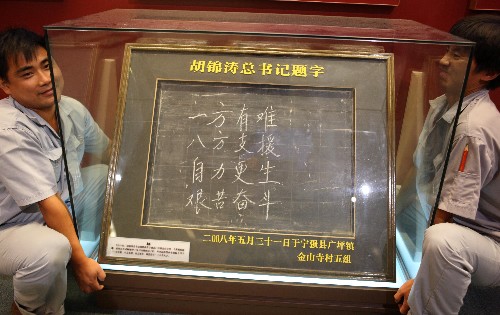 胡锦涛总书记题字
一方有难
八方支援
自力更生
艰苦奋斗
二〇〇八年五月二十一日于宁强县广坪镇
金山寺村五组